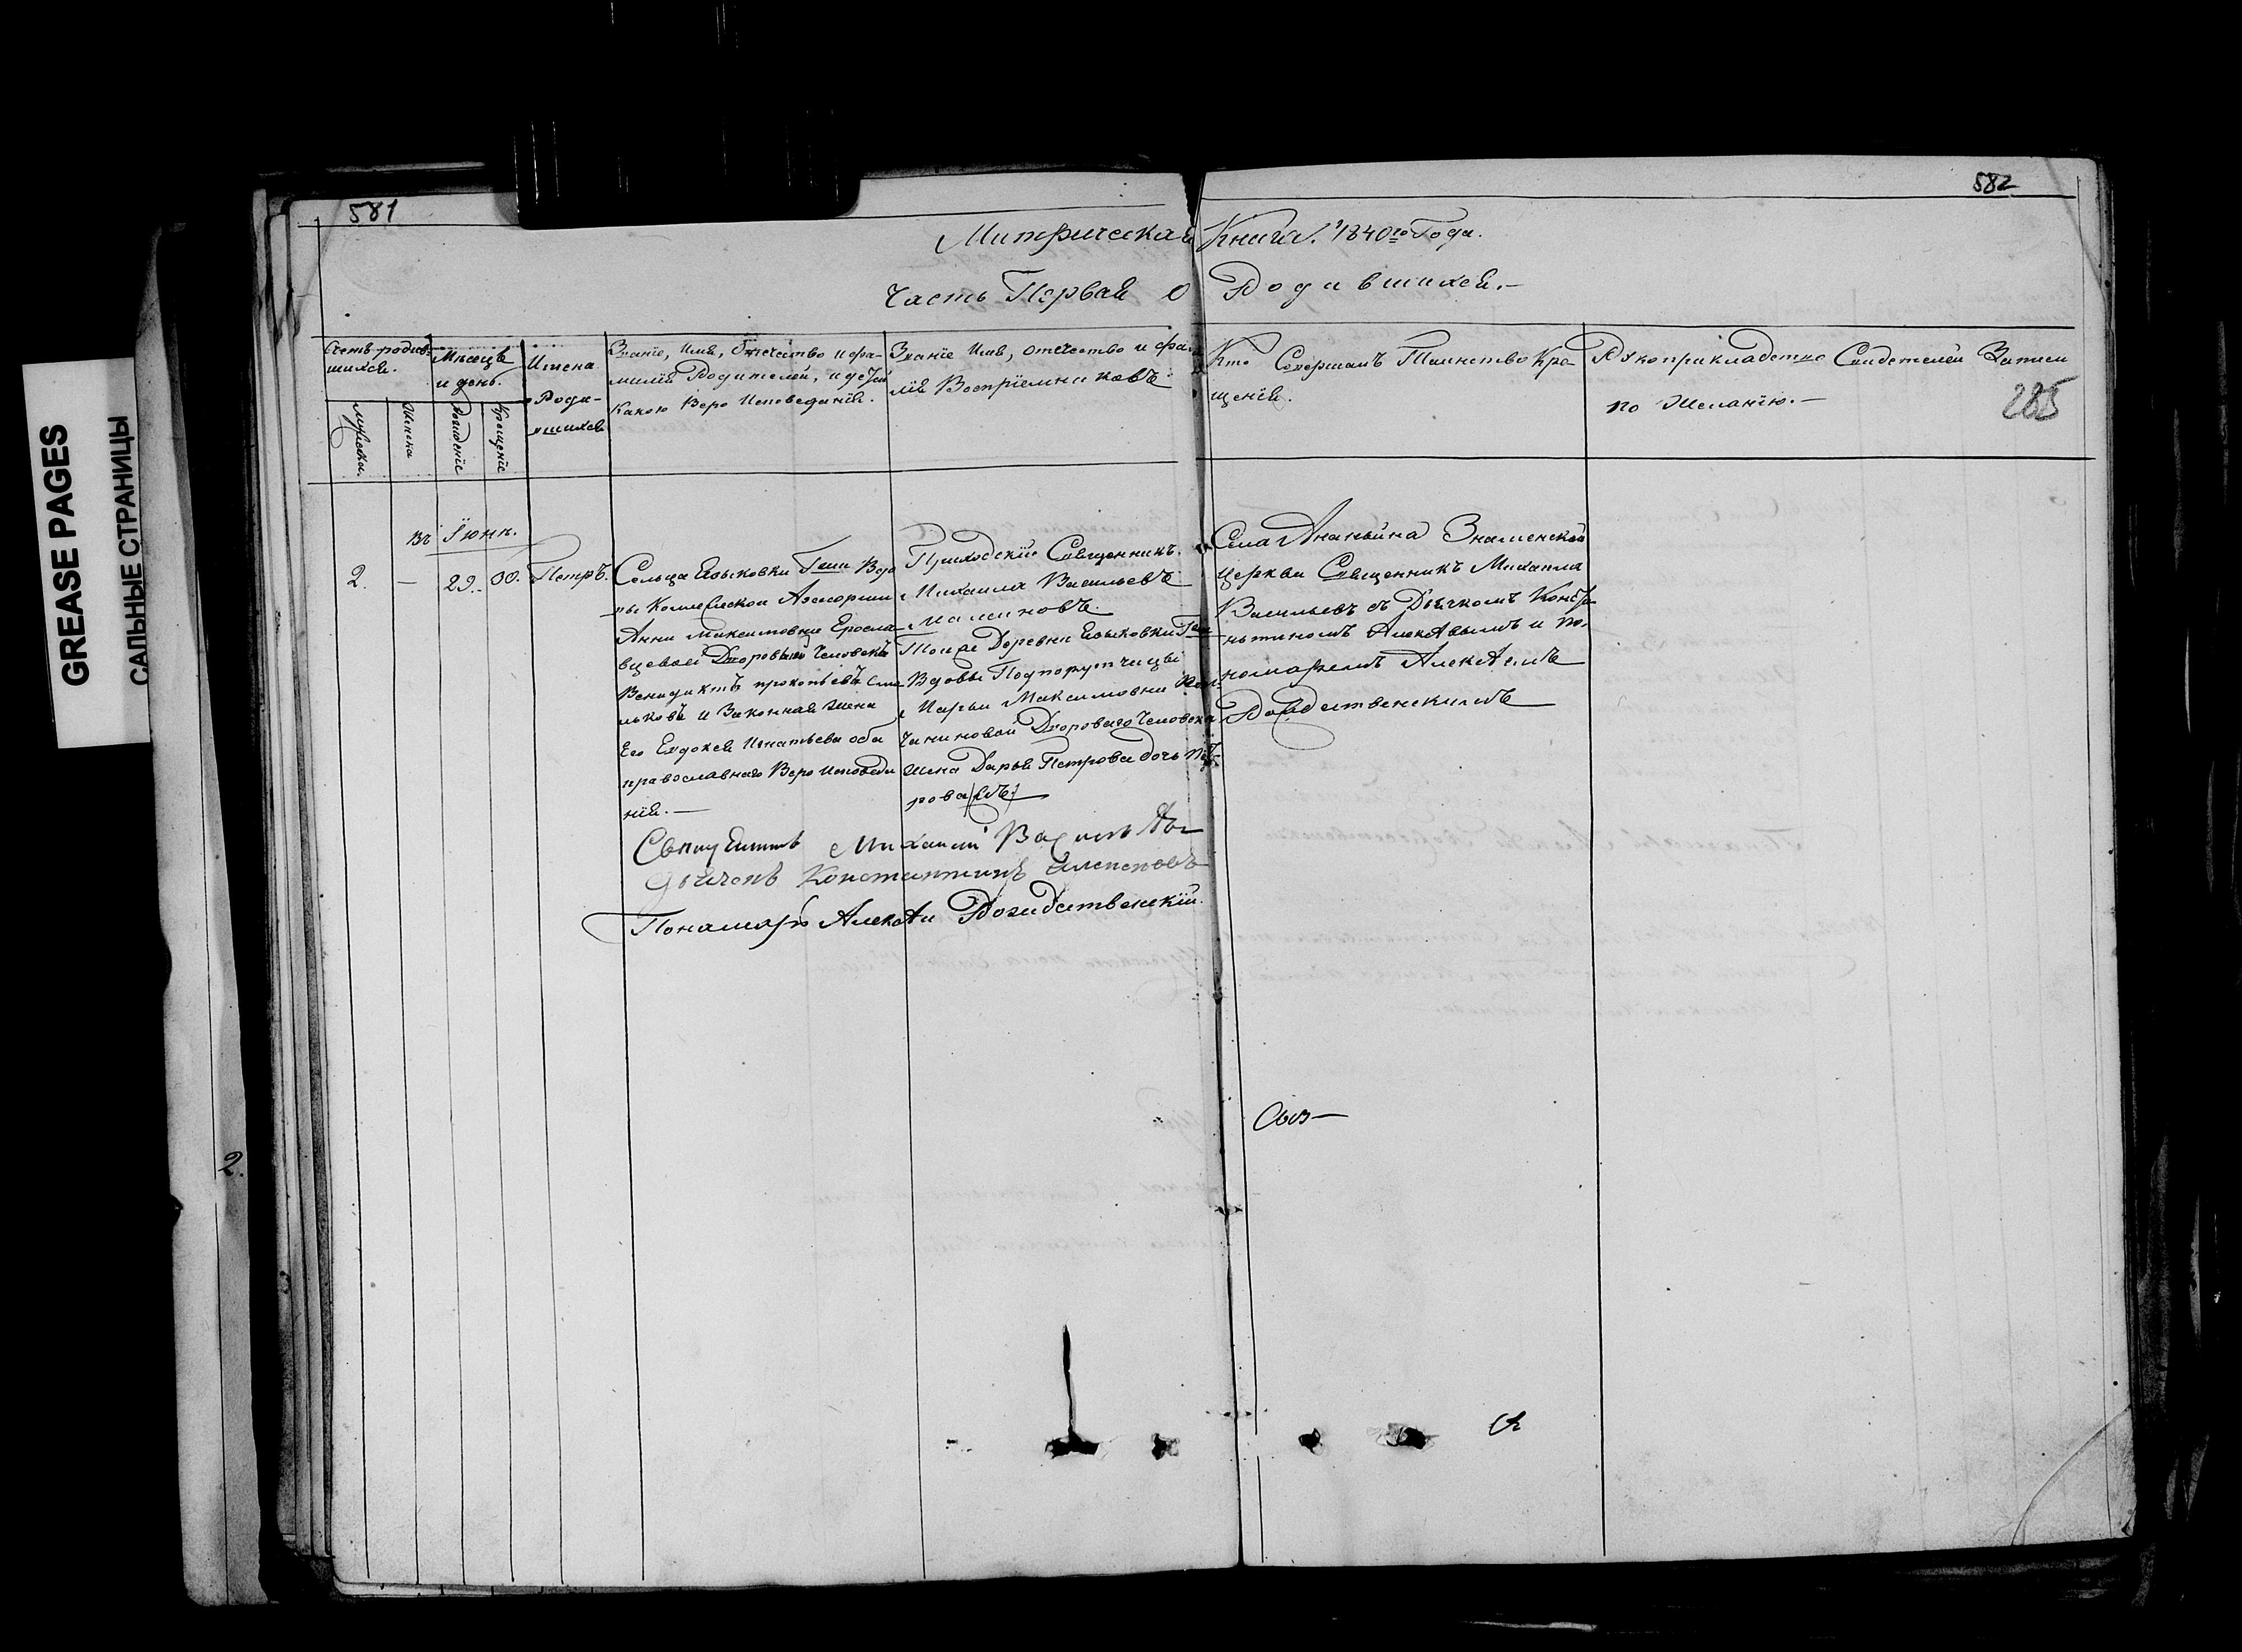 GREASE PAGES
САЛЬНЫЕ СТРАНИЦЫ
2.
581
582
Митрическая Книга. 1840го Года.
Часть Первая о Родившихся.
Счетъ родив-
шихся.
мужеска.
Женска
Месецъ
и день.
Рождение
Крещение
Имена
Роди-
вшихся
Звание, Имя, Отечество и фа-
милия Родителей, и
Какого Веро Исповедания.
Звание Имя, отечество и фами-
лия Восприемниковъ
Кто Совершалъ Таинство Кре-
щения.
Рукоприкладство Свидетелей Записи
по Желанию.
285
въ Июнѣ.
2. — 29. 30. Петръ.
Сельца Языковки Гжи Вдо
вы Коллежской Асесорши
Анны Максимовны Еросла-
вцевой Дворовый Человекъ
Венидиктъ прокопьевъ
и Законная жена
Его Евдокея Игнатьева оба
православнаго Веро исповеда
ния.—
Приходские Священникъ
Михаила Васильевъ
Тойже Деревни Языковки Гжи
Вдовы Подпорутчицы
Марьи Максимовны
Дворового Человека
жена Дарья Петрова дочь Пет-
рова
Села Ананьина Знаменской
церкви Священникъ Михаила
Васильевъ съ Дьячкомъ Конста-
нтиномъ и по-
номаремъ Алексеемъ
Рождественскимъ
Священникъ Михаилъ Васильевъ
дьячекъ Константинъ
Понамарь Алексей Рождественский.